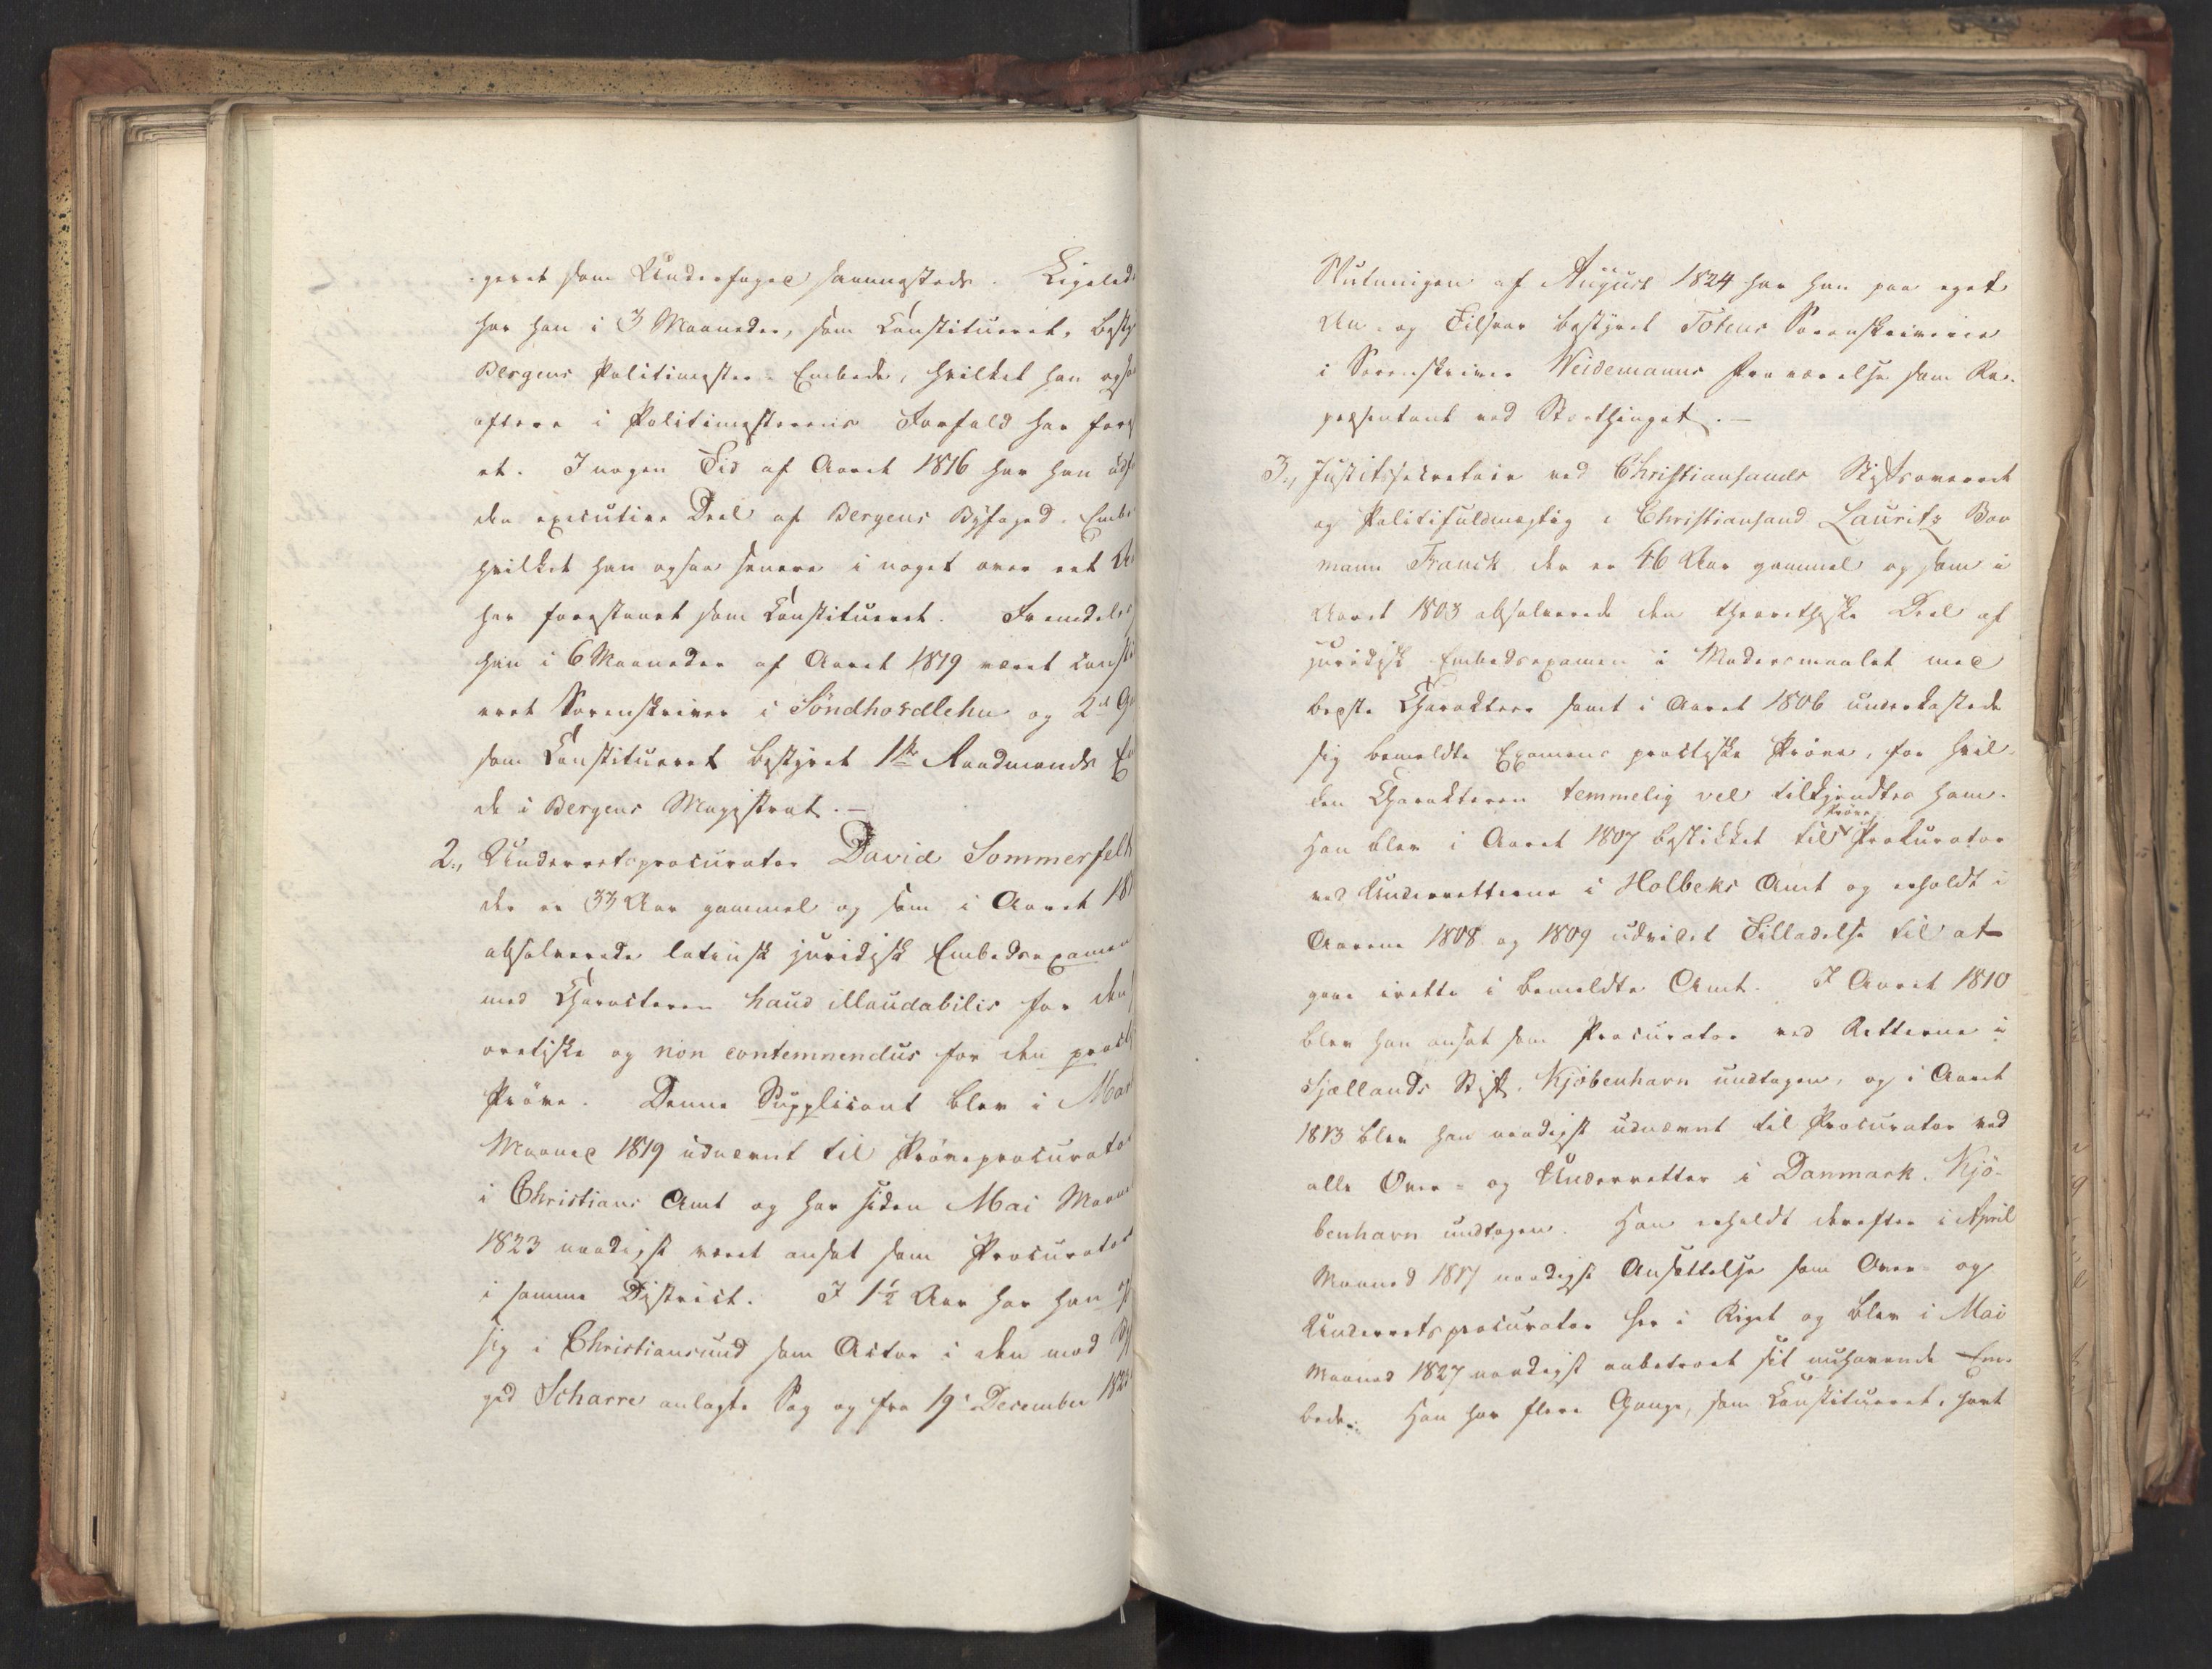 geret som Underfoged sammesteds. Ligeled
har han i 3 Maaneder, som Constitueret, besty
Bergens Politimester-Embede, hvilket han ogsaa
oftere i Politimesterens Forfald har forest
et. I nogen Tid af Aaret 1816 har han udf
den executive Deel af Bergens Byfoged-Embe
hvilket han ogsaa senere i noget over eet Aa
har forestaaet som Constitueret. Fremdeles
han i 6 Maaneder af Aaret 1819 været Consti
eret Sorenskriver i Söndhordlehn og 2de Ga
som Constitueret bestyret 1ste Raadmands Em
de i Bergens Magistrat.—
2., Underretsprocurator David Sommerfelt
der er 33 Aar gammel og som i Aaret 181
absolverede latinsk juridisk Embedsexamen
med Characteren haud illaudabilis for den
oretiske og non contemnendus for den practi
Pröve. Denne Supplicant blev i Mar
Maaned 1819 udnævnt til Pröveprocurator
i Christians Amt og har siden Mai Maaned
1823 naadigst været ansat som Procurator
i samme District. I 1½ Aar har han op
sig i Christiansund som Actor i den mod By
ged Scharre anlagte Sag og fra 19de December 1823
Slutningen af August 1824 har han paa eget
An- og Tilsvar bestyret Totens Sorenskriverie
i Sorenskriver Weidemanns Fraværelse som Re-
præsentant ved Storthinget.—
3., Justitssecretair ved Christiansands Stiftsoverret
og Politifuldmægtig i Christiansand Lauritz Bor
mann Franck der er 46 Aar gammel og som i
Aaret 1803 absolverede den theorethiske Deel af
juridisk Embedsexamen i Modersmaalet med
bedste Charakteer samt i Aaret 1806 underkastede
sig bemeldte Examens practiske Pröve, for hvil-
den Charakteren temmelig vel tilkjendtes ham.
Han blev i Aaret 1807 beskikket til Pröve Prokurator
ved Underretterne i Holbeks Amt og erholdt i
Aarene 1808 og 1809 udvidet Tilladelse til at
gaae irette i bemeldte Amt. I Aaret 1810
blev han ansat som Procurator ved Retterne i
Sjællands Stift, Kjöbenhavn undtagen, og i Aaret
1813 blev han naadigst udnævnt til Procurator ved
alle Over- og Underretter i Danmark, Kjö-
benhavn undtagen. Han erholdt derefter i April
Maaned 1817 naadigst Ansættelse som Over- og
Underretsprocurator her i Riget og blev i Mai
Maaned 1827 naadigst anbetroet sit nuhavende Em-
bede. Han har flere Gange, som Constitueret, havt